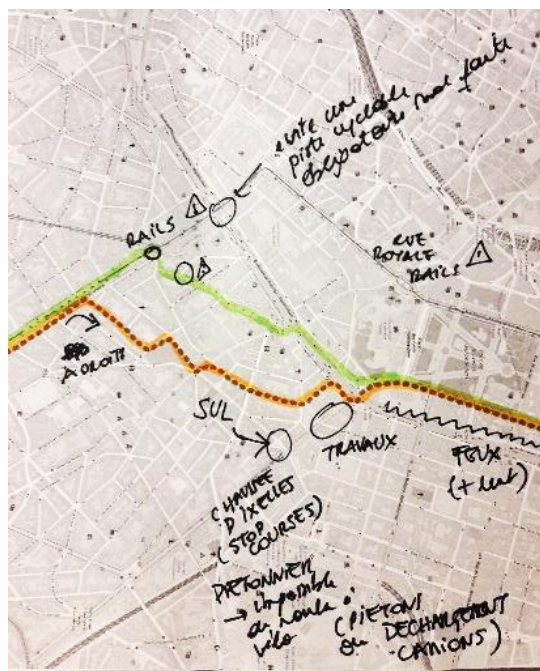 évite une
piste cyclable
obligatoire mal faite
RAILS
RUE
ROYALE
RAILS
A DROITE
SUL
TRAVAUX
FEUX
(+ lent)
CHAUSSEE
D'IXELLES
(STOP
COURSES)
PIETONNIER
→ impossible
de rouler à
vélo
(PIETONS
ou DECHARGEMENT
CAMIONS)